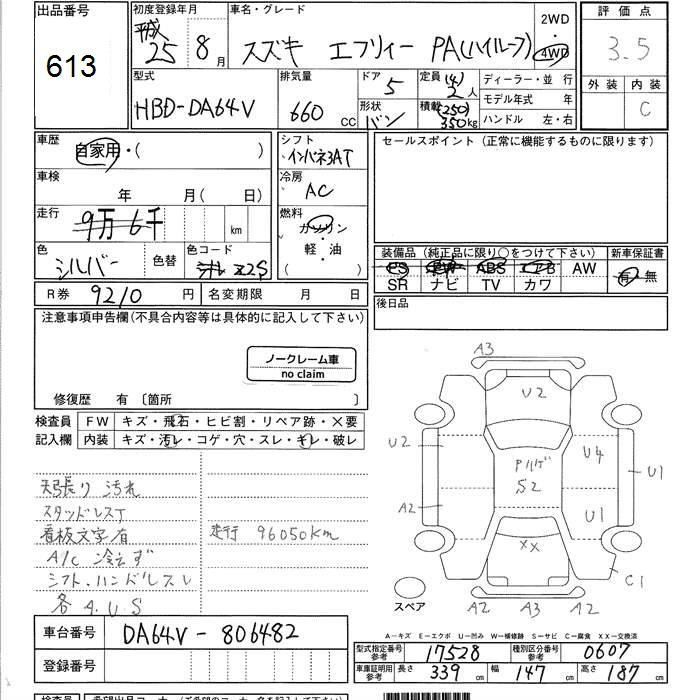 出品番号 初度登録年月 車名・グレード 2WD 評価点
613 平成25 8月 スズキ エブリィー PA(ハイルーフ) 4WD 3.5
型式 排気量 ドア 5 定員 (4) 2人 ディーラー・並行 外装 内装
HBD-DA64V 660 CC 形状 バン 積載 (250) 350kg モデル年式 年 C
ハンドル 左・右
車歴 自家用・( ) シフト インパネ3AT セールスポイント (正常に機能するものに限ります)
車検 年 月(日) 冷房 AC
走行 9万6千 km 燃料 ガソリン・軽油 ( )
色 シルバー 色替 色コード Z2S 装備品 (純正品に限り〇をつけて下さい) 新車保証書
PS PW ABS エアB AW 有・無
SR ナビ TV カワ
R券 9210 円 名変期限 月 日 後日品
注意事項申告欄(不具合内容等は具体的に記入して下さい)
ノークレーム車
no claim
修復歴 有 〔箇所 〕
検査員 FW キズ・飛石・ヒビ割・リペア跡・X要
記入欄 内装 キズ・汚レ・コゲ・穴・スレ・キレ・破レ
天張り 汚れ
スタッドレスT
看板文字有 走行 96050km
A/C 冷えず
シフト、ハンドルスレ
各 A.U S
A3
U2
U2 U4 U1
Pハゲ
S2
A2 U1
XX
C1
スペア A2 A3 A2
A-キズ E-エクボ U-凹み W-補修跡 S-サビ C-腐食 XX-交換済
車台番号 DA64V-806482
型式指定番号 参考 17528 種別区分番号 参考 0607
登録番号 車庫証明用 参考 長さ 339 cm 幅 147 cm 高さ 187 cm